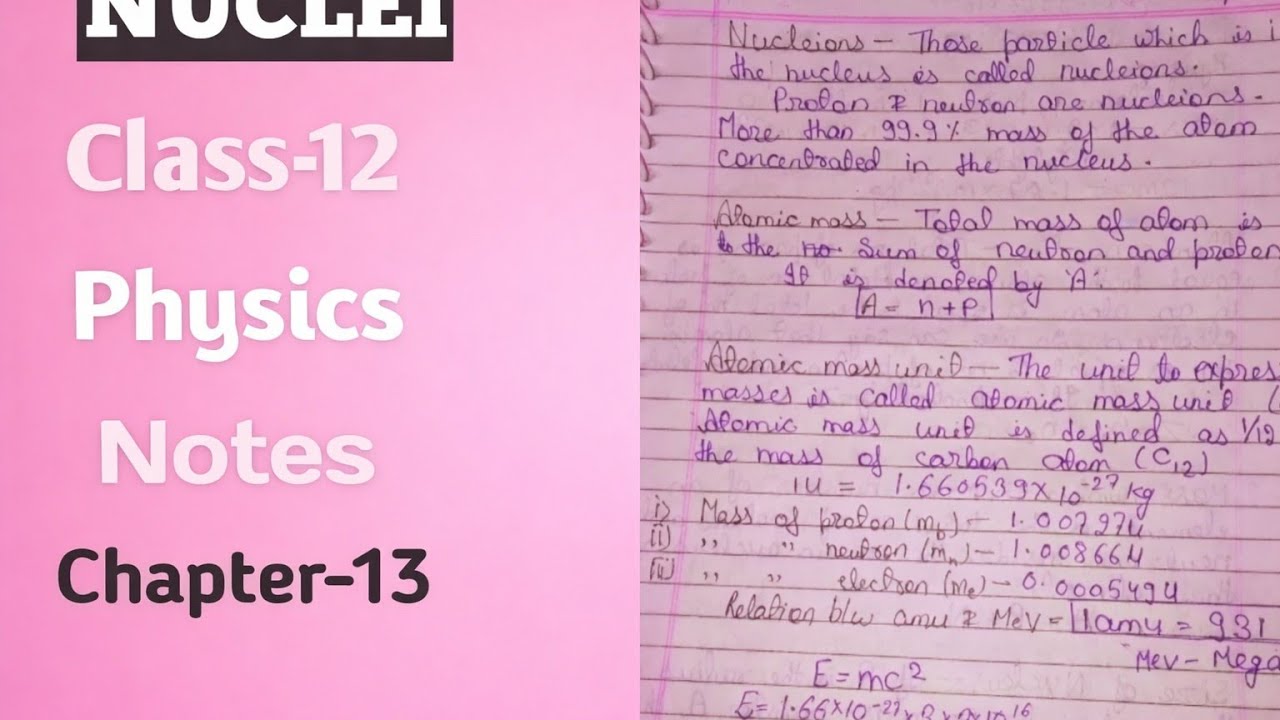 NUCLEI
Class-12
Physics
Notes
Chapter-13
Nucleions - Those particle which is i
the nucleus is called nucleions.
Proton & neutron are nucleions.
More than 99.9% mass of the atom
concentrated in the nucleus.
Atomic mass - Total mass of atom is
to the no. Sum of neutron and proton
It is denoted by 'A'.
A = n + P
Atomic mass unit - The unit to expres
masses is called atomic mass unit (
Atomic mass unit is defined as 1/12
the mass of carbon atom (C12)
1u = 1.660539×10⁻²⁷ kg
i) Mass of proton (mp) - 1.00727u
ii) ,, ,, neutron (mn) - 1.00866u
iii) ,, ,, electron (me) - 0.000549u
Relation b/w amu & MeV = 1amu = 931
Mev - Mega
E = mc²
E = 1.66×10⁻²⁷×